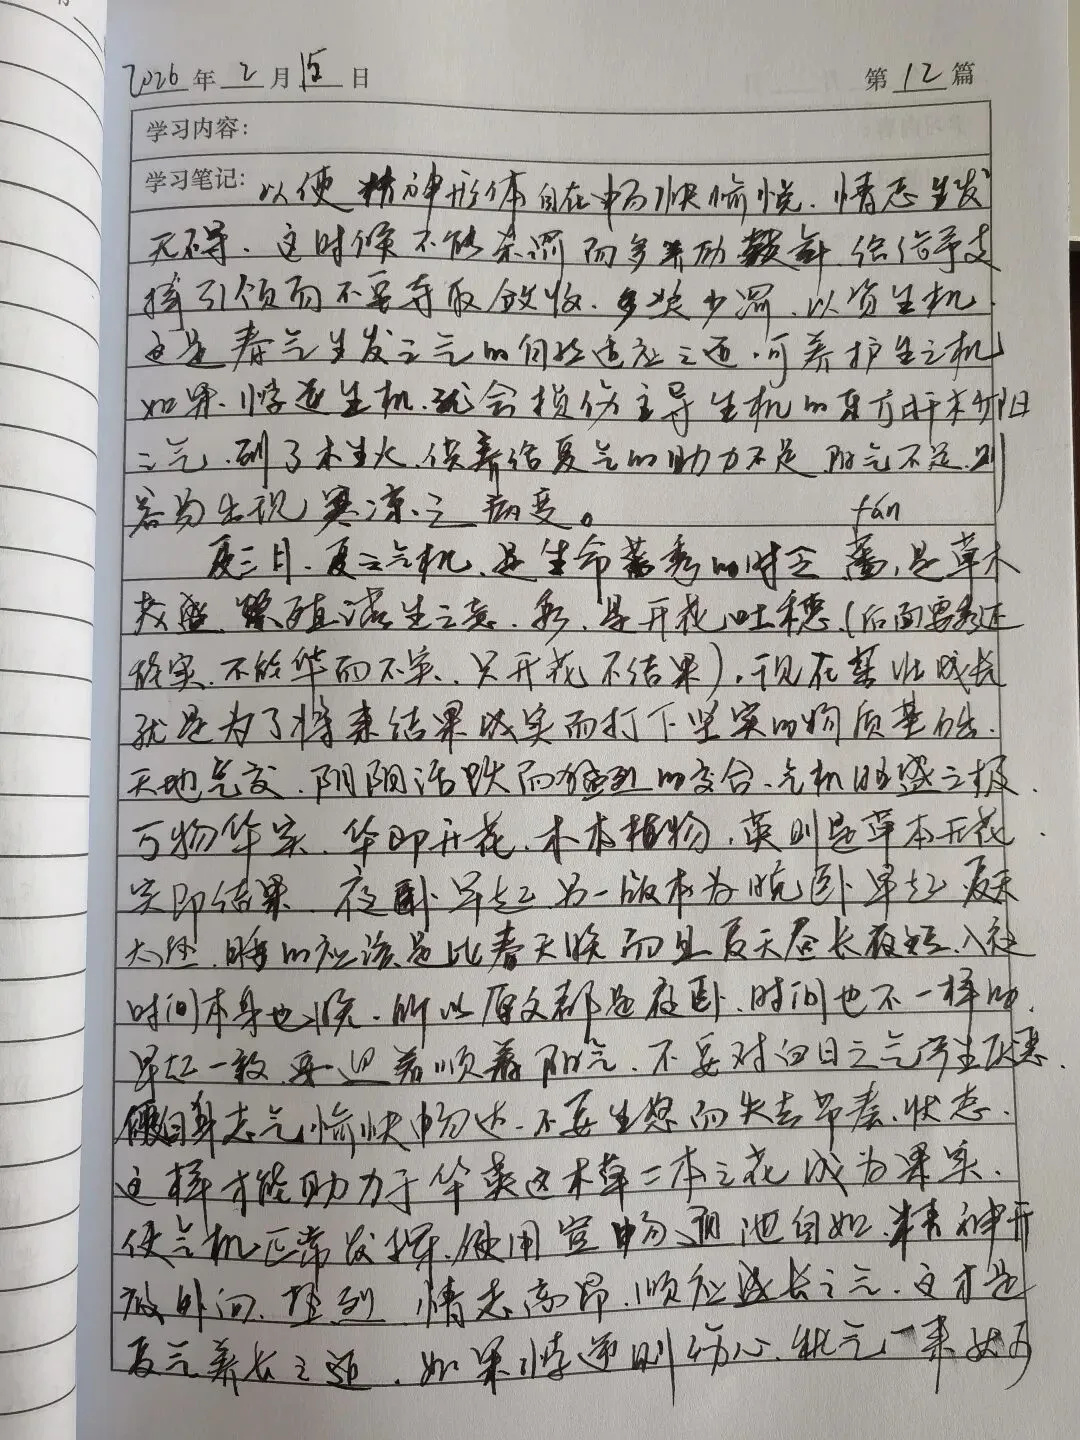 2026年2月15日 第12篇
学习内容:
学习笔记: 以使精神形体自在畅快愉悦.情志生发
无不得.这时候不能杀罚而多奖励鼓舞.给信予支
持引领而不要夺取敛收.多奖少罚.以资生机.
这是春气生发之气的自然适应之道.可养护生之机
如果悖逆生机.就会损伤主导生机的东方肝木
之气.到了木生火.供养给夏气的助力不足.阳气不足.则
容易出现寒凉之病变。
fán
夏三月.夏之气机.是生命蕃秀的时令 蕃,是草木
茂盛 繁殖滋生之意.秀,是开花吐穗.(后面要
结实.不能华而不实.只开花不结果).现在茁壮成长
就是为了将来结果成实而打下坚实的物质基础.
天地气交.阴阳活跃而强烈的交合.气机旺盛之极.
万物华实.华即开花.木本植物.英则是草本开花.
实即结果.夜卧早起.另一版本为晚卧早起.夏天
太热.睡的应该是比春天晚而且夏天昼长夜短.入夜
时间本身也晚.所以原文都是夜卧.时间也不一样的.
早起一致.要迎着顺着阳气.不要对白日之气产生厌恶.
使自身志气愉快畅达.不要生怒而失去节奏.状态.
这样才能助力于华英这木草二本之花成为果实.
使气机正常发挥.使用宣畅通泄自如.精神开
放外向.热烈.情志高昂.顺应成长之气.这才是
夏气养长之道.如果悖逆则伤心.秋气一来